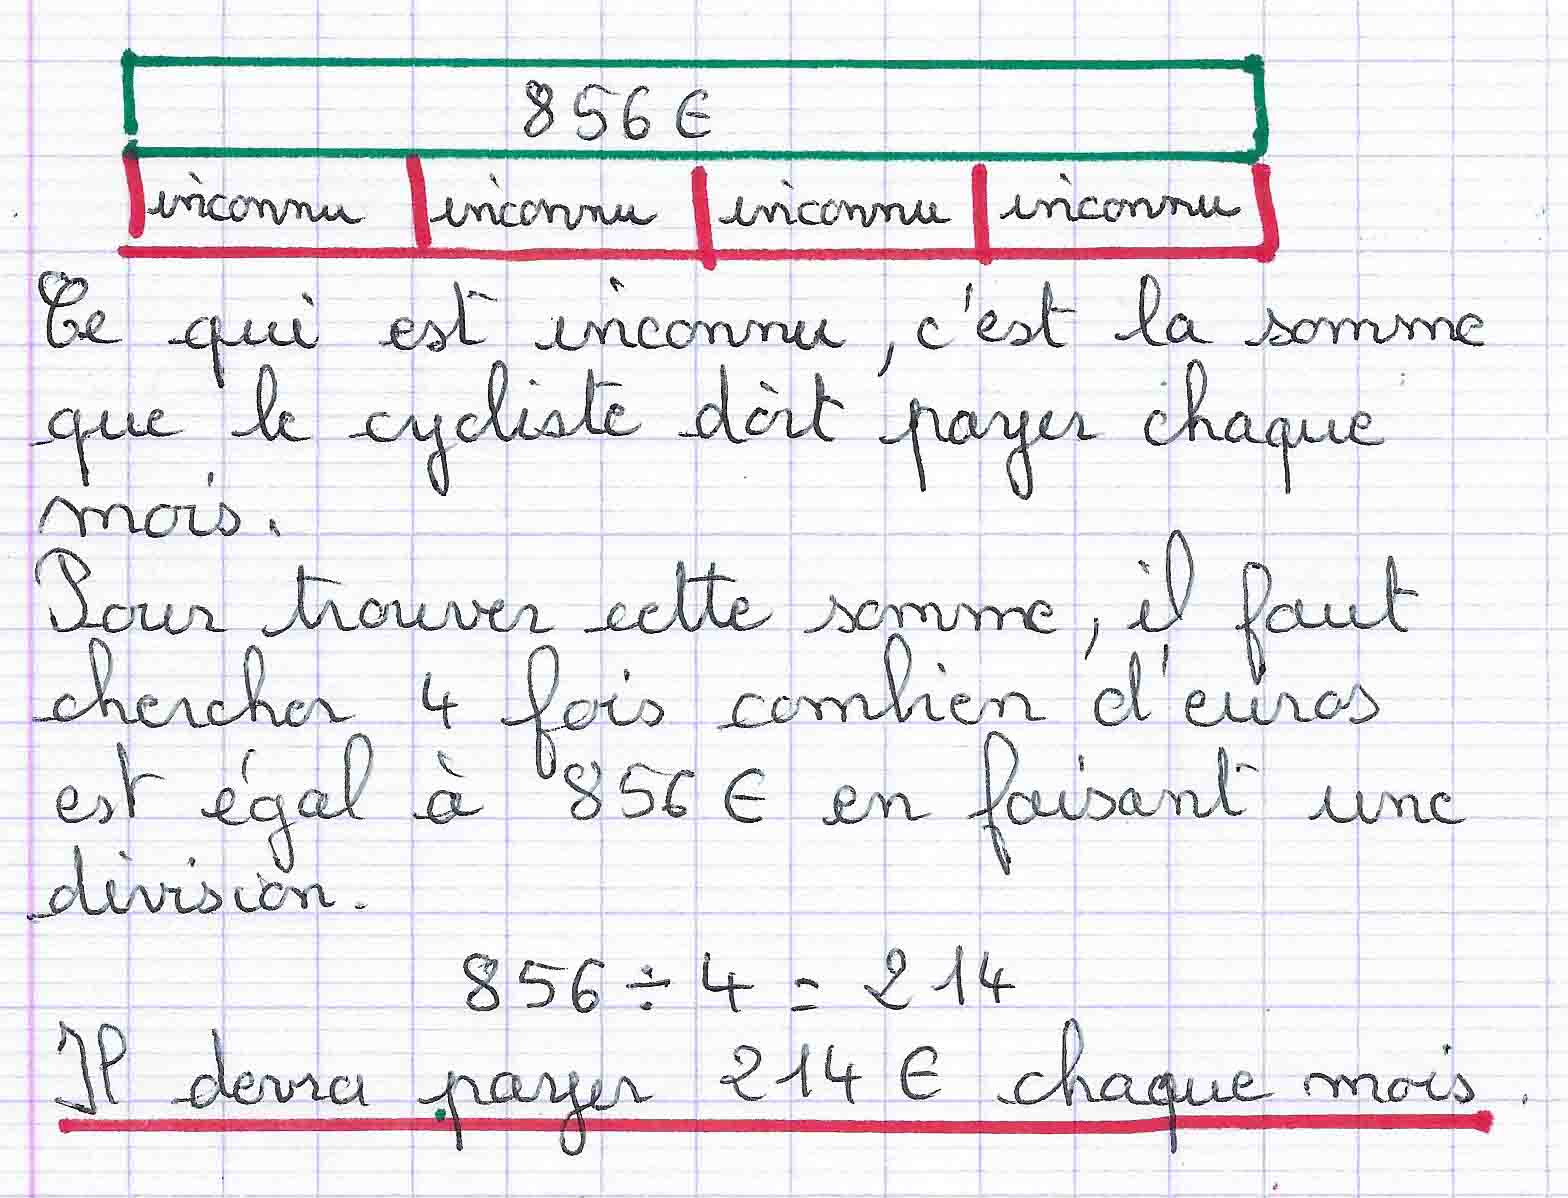 856 €
inconnu inconnu inconnu inconnu
Ce qui est inconnu, c'est la somme
que le cycliste doit payer chaque
mois.
Pour trouver cette somme, il faut
chercher 4 fois combien d'euros
est égal à 856 € en faisant une
division.
856 ÷ 4 = 214
Il devra payer 214 € chaque mois.